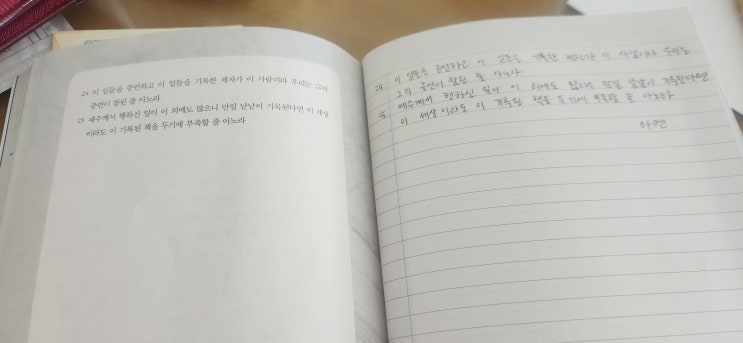 24 이 일들을 증언하고 이 일들을 기록한 제자가 이 사람이라 우리는 그의
증언이 참된 줄 아노라
25 예수께서 행하신 일이 이 외에도 많으니 만일 낱낱이 기록된다면 이 세상
이라도 이 기록된 책을 두기에 부족할 줄 아노라
24 이 일들을 증언하고 이 일들을 기록한 제자가 이 사람이라 우리는
그의 증언이 참된 줄 아노라
25 예수께서 행하신 일이 이 외에도 많으니 만일 낱낱이 기록된다면
이 세상이라도 이 기록된 책을 두기에 부족할 줄 아노라
아멘.